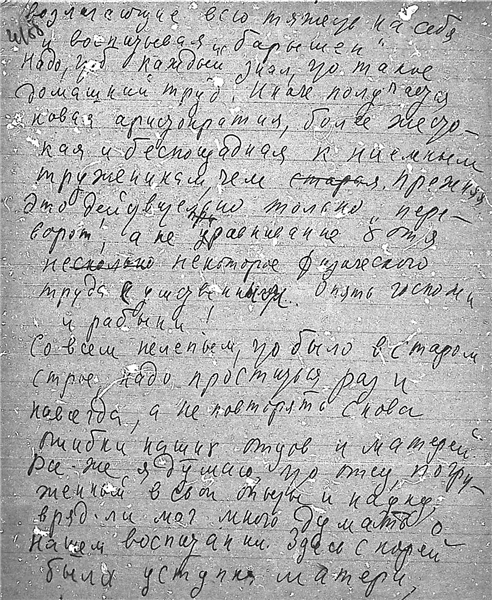 возлагающие всю тяжесть на себя
и воспитывая „барышень"
Надо, чтоб каждый знал, что такое
домашний труд. Иначе получается
новая аристократия, более жесто-
кая и беспощадная к наемным
труженикам чем старая. прежняя
Это действительно только „пере-
ворот", а не уравнивание хотя
несколько некоторое физического
труда с умственным. Опять госпожи
и рабыни!
Со всем нелепым, что было в старом
строе, надо проститься раз и
навсегда, а не повторять снова
ошибки наших отцов и матерей.
Все же, я думаю, что отец, погру-
женный в свои опыты и науку,
вряд-ли мог много думать о
нашем воспитании. Здесь скорей
была уступка матери,